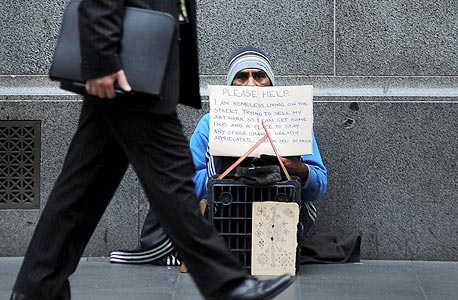 PLEASE HELP.
I AM HOMELESS LIVING ON THE
STREET, TRYING TO SELL MY
ART WORK, SO I CAN GET SOME
FOOD AND A PLACE TO STAY
ANY SPARE CHANGE GREATLY
APPRECIATED... THANK YOU SO MUCH